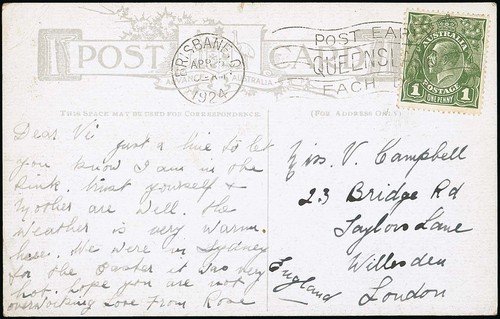 POST CARD
BRISBANE
AP
1924
POST EAR
QUEENSL
EACH
AUSTRALIA
POSTAGE
1 1
ONE PENNY
AUSTRALIA
THIS SPACE MAY BE USED FOR CORRESPONDENCE.
(FOR ADDRESS ONLY)
Dear Vi
just a line to let
you know I am in the
Pink. trust yourself &
Mother are well. the
Weather is very warm
here. We were in Sydney
for the Easter it was very
hot. hope you are not
overworking Love From Rose
Miss. V. Campbell
23 Bridge Rd
Taylors Lane
Willesden
London
England